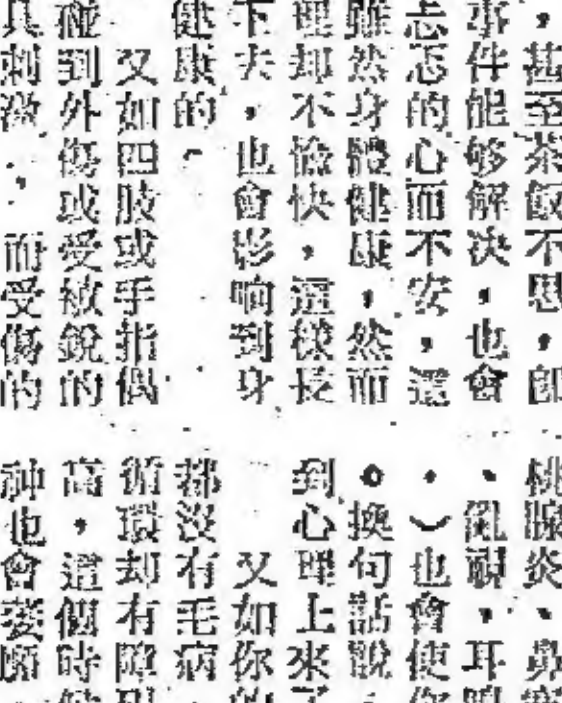 ，甚至茶飯不思，卽
事件能够解决，也會
忐忑的心而不安，這
雖然身體健康，然而
理却不愉快，這樣長
下去，也會影响到身
健康的。
又如四肢或手指偶
碰到外傷或受被銳的
具刺激，而受傷的
桃腺炎、鼻
、亂視、耳
、）也會使
。換句話說，
到心理上來了
又如你的
都沒有毛病，
循環却有障
高，這個時
神也會萎靡